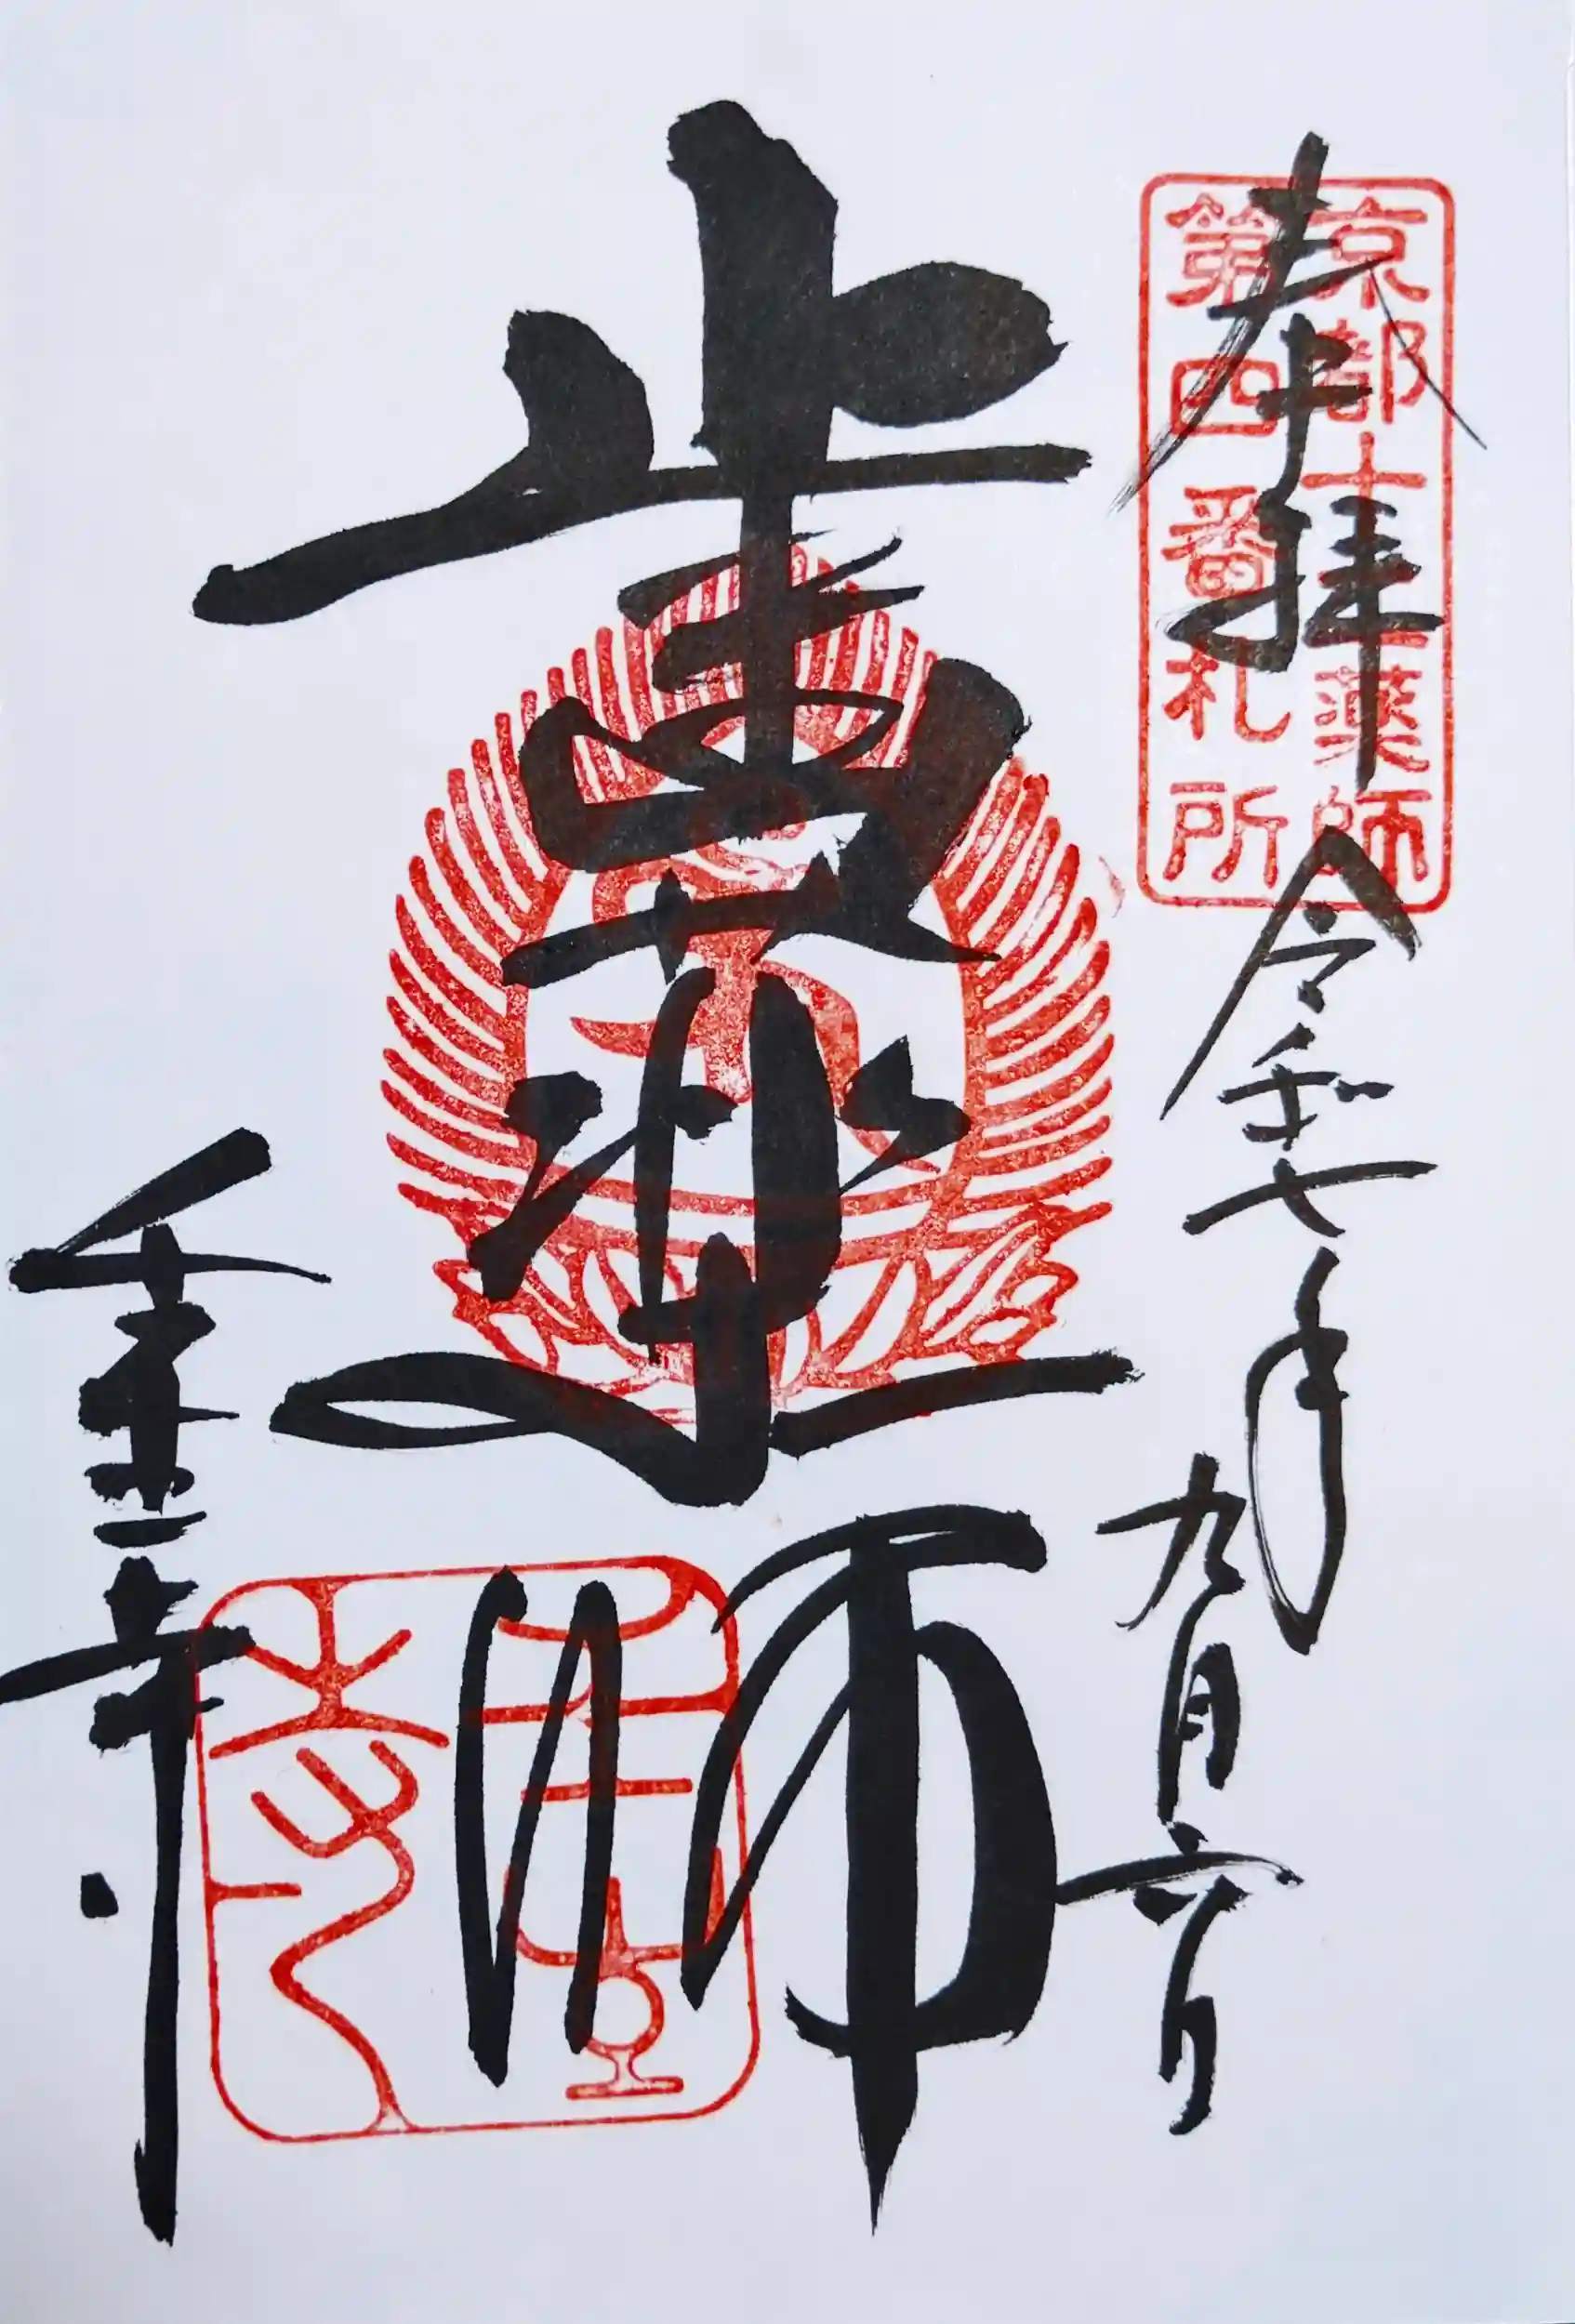 京都十二薬師
第四番札所
奉拝
令和七年九月六日
歯薬師
壬生寺